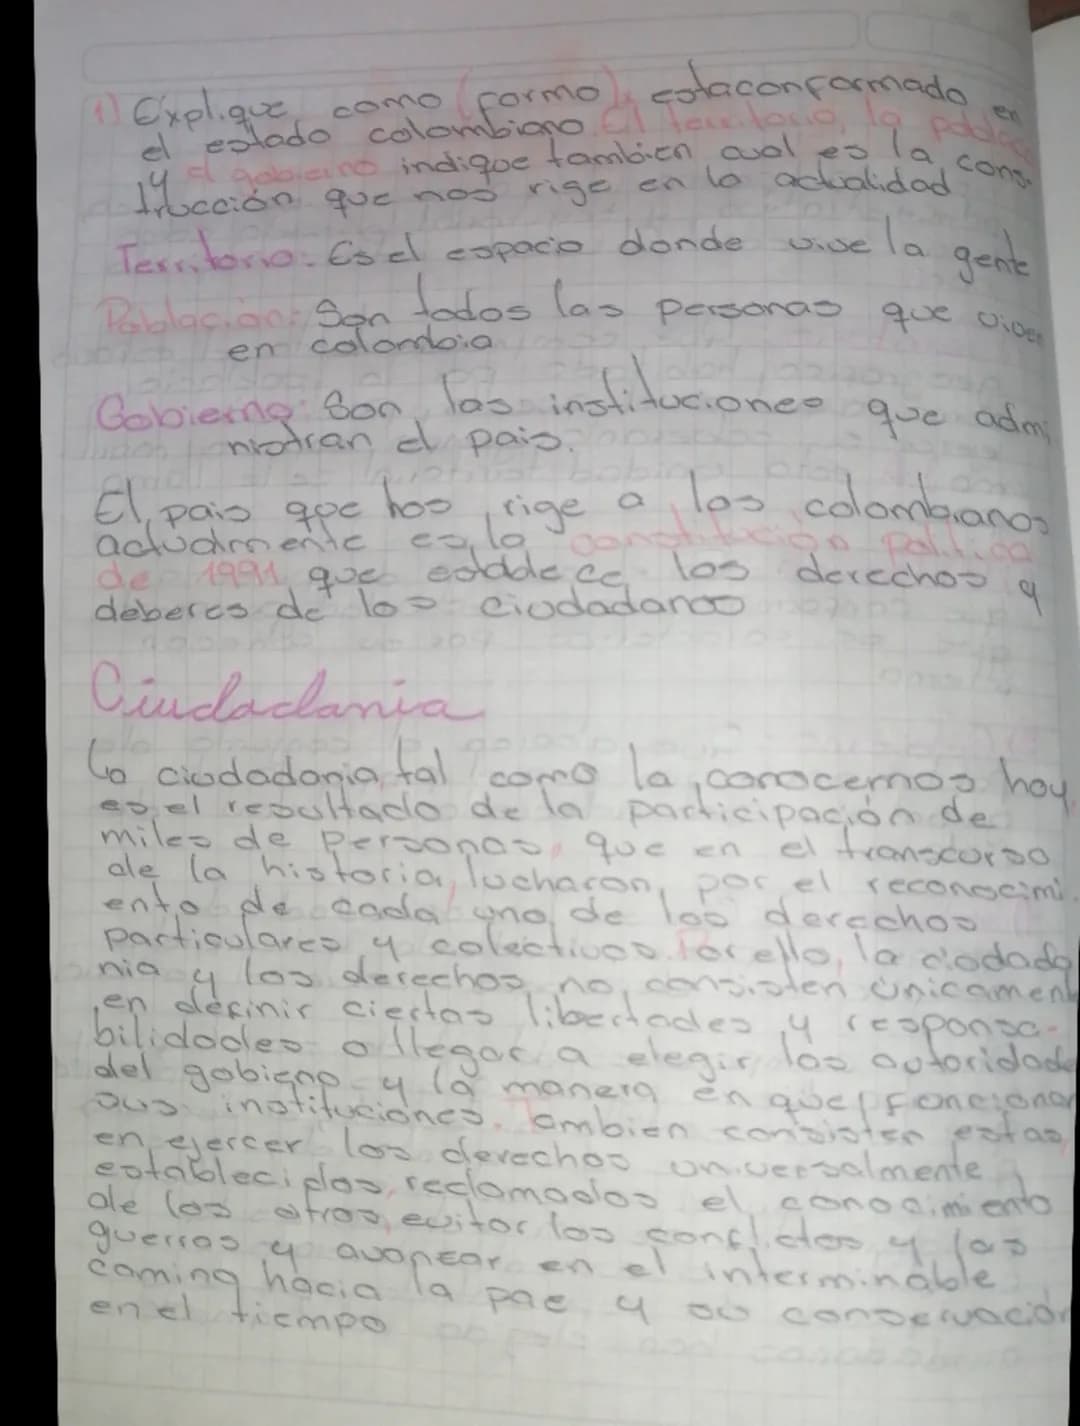 1) Explique como (formo) estaconformado en
el estado colombiano El territorio, la poblac
y el gobierno indique tambien cual es la cons-
trucción que nos rige en la actualidad
Territorio: Es el espacio donde vive la gente
Población: Son todos las personas que viven
en colombia
Gobierno: Son las instituciones que admi
nistran el pais.
El pais que nos rige a los colombianos
actualmente es la constitución politica
de 1991 que establece los derechos y
deberes de los ciudadanos
Ciudadania
La ciudadania, tal como la conocemos hoy
es el resultado de la participación de
miles de personas, que en el transcurso
de la historia, lucharon, por el reconocimi
ento de cada uno de los derechos
particulares y colectivos. Por ello, la ciudada
nia y los derechos no consisten únicament
en definir ciertas libertades y responsa-
bilidades o llegar a elegir las autoridade
del gobieno y la manera en que funcionan
sus instituciones. ambien consisten estas,
en ejercer los derechos universalmente
establecidos, reclamados el conocimiento
de los otros, evitar los conflictos y las
guerras y avanzar en el interminable
caming hacia la paz y su conservación
en el tiempo